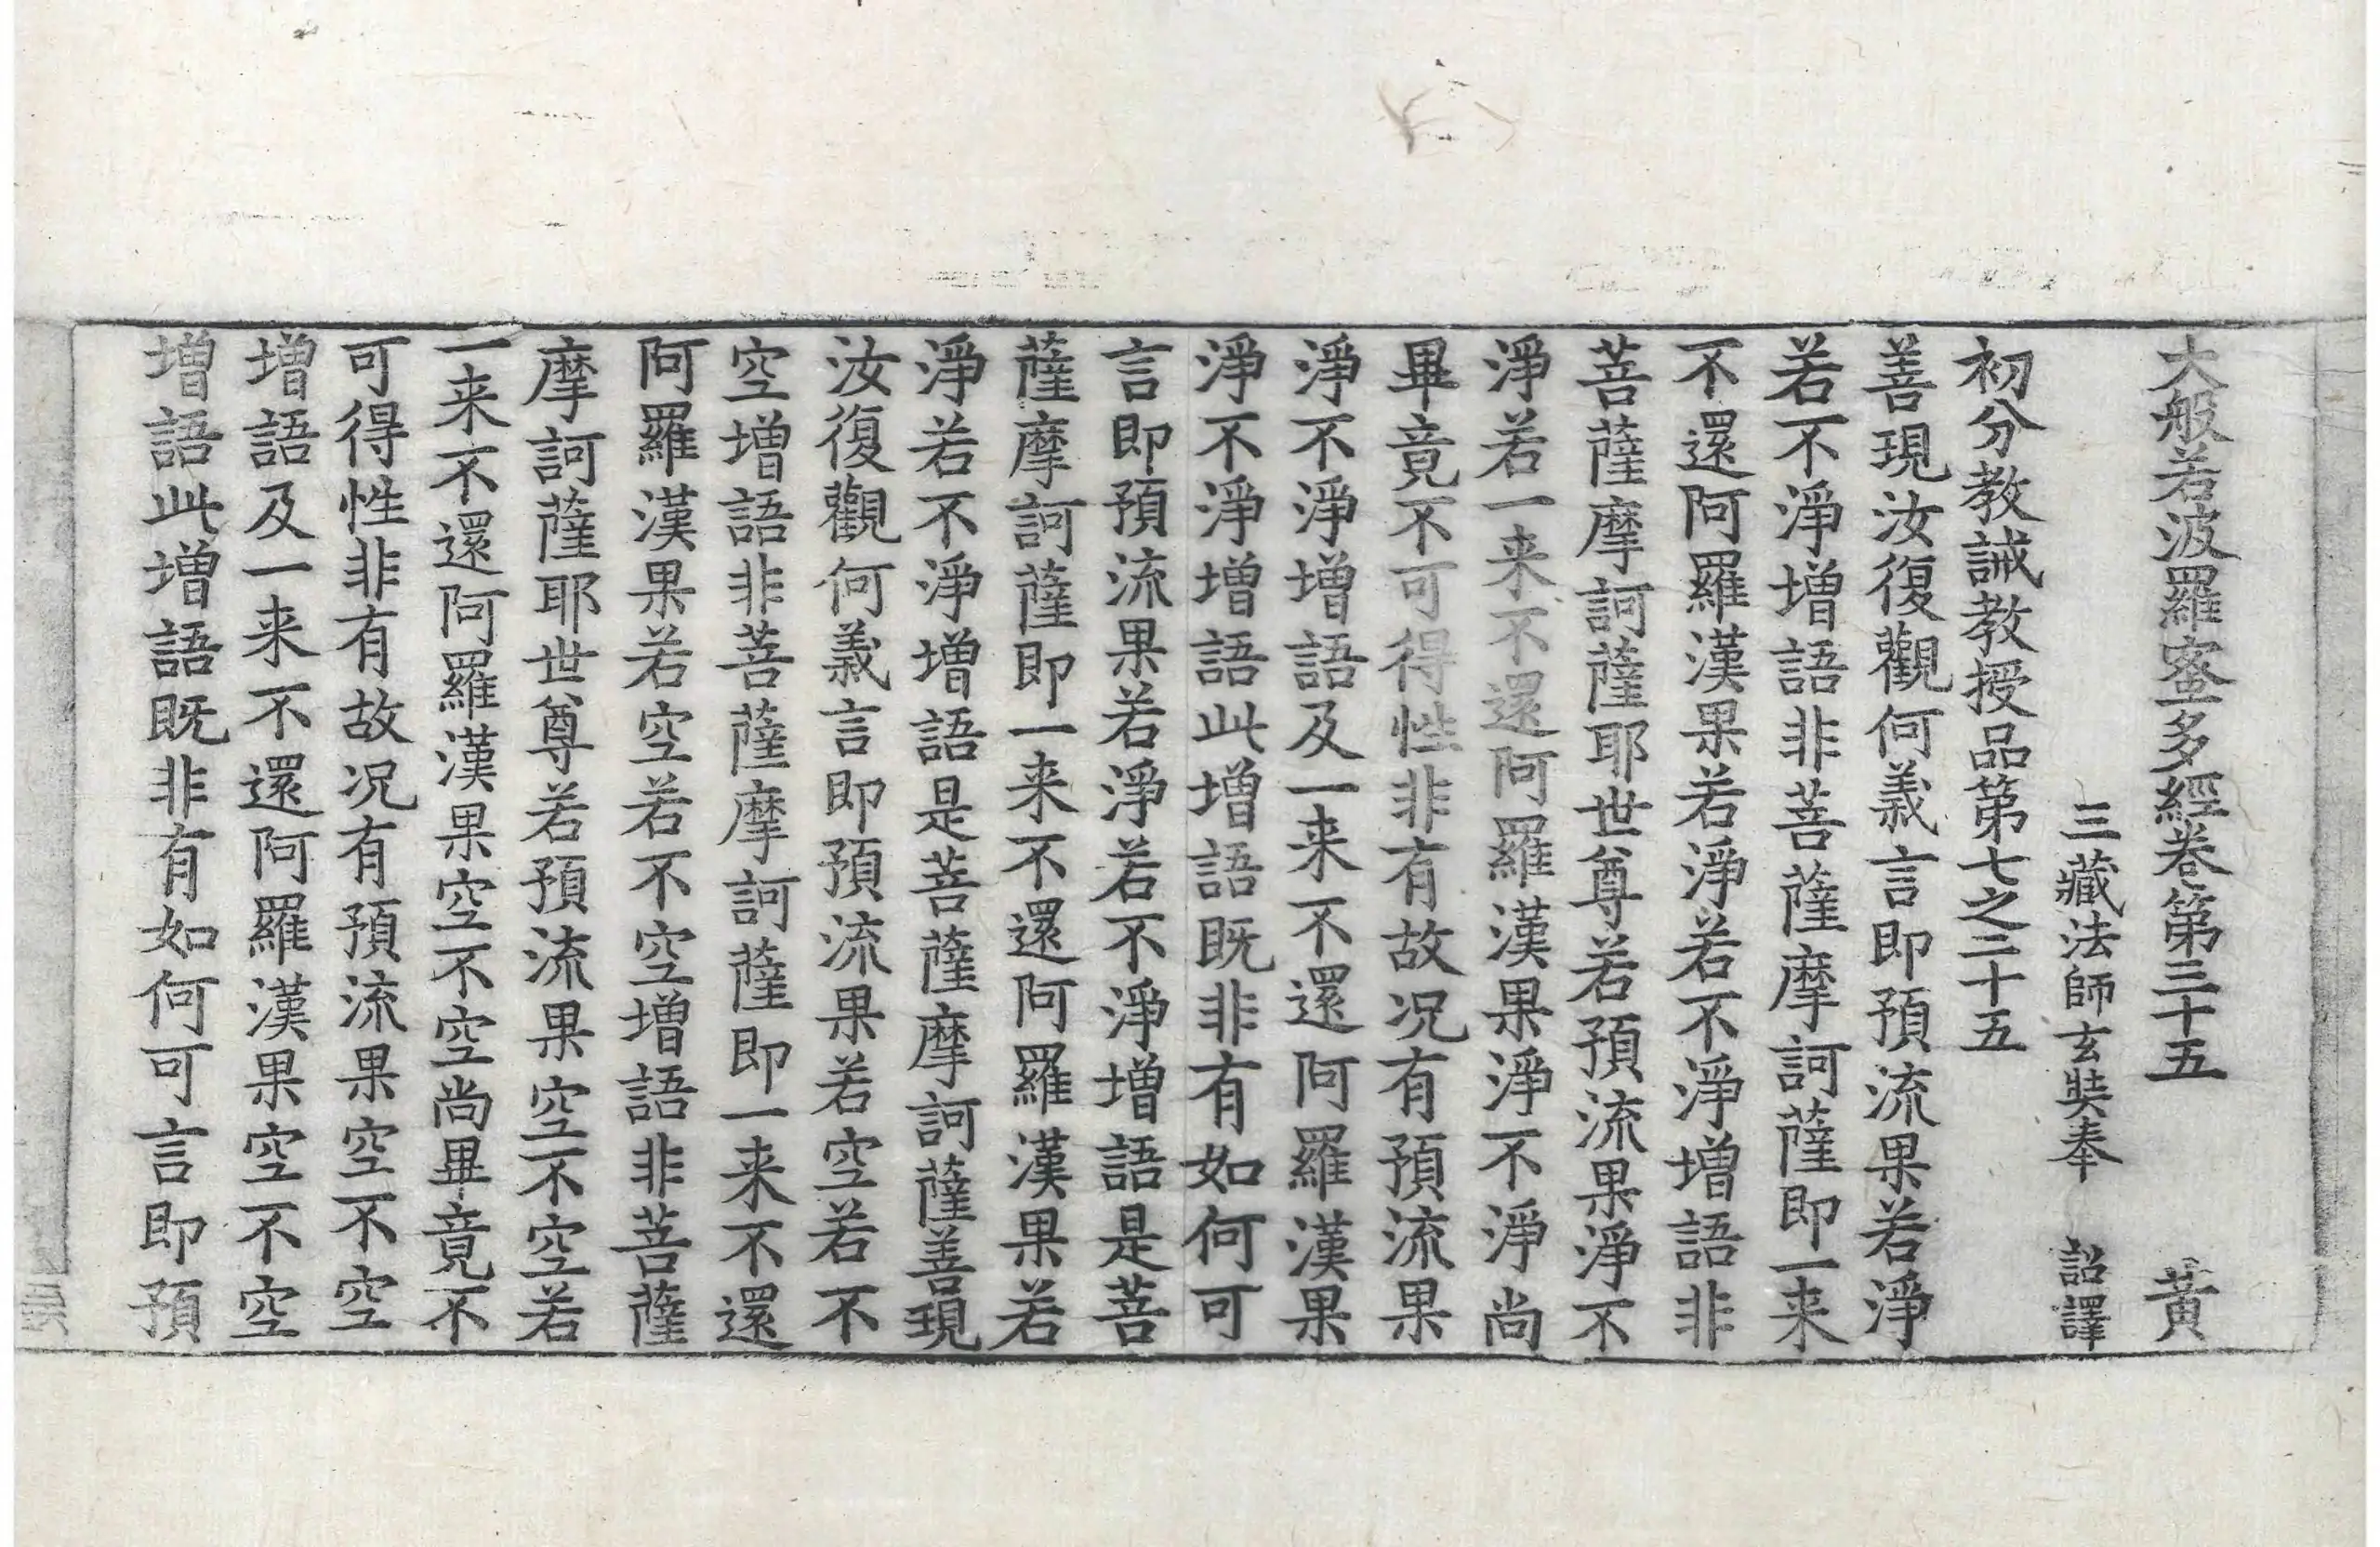 大般若波羅蜜多經卷第三十五　黃
三藏法師玄奘奉　詔譯
初分教誡教授品第七之二十五
善現汝復觀何義言即預流果若淨
若不淨增語非菩薩摩訶薩即一来
不還阿羅漢果若淨若不淨增語非
菩薩摩訶薩耶世尊若預流果淨不
淨若一来不還阿羅漢果淨不淨尚
畢竟不可得性非有故况有預流果
淨不淨增語及一来不還阿羅漢果
淨不淨增語此增語既非有如何可
言即預流果若淨若不淨增語是菩
薩摩訶薩即一来不還阿羅漢果若
淨若不淨增語是菩薩摩訶薩善現
汝復觀何義言即預流果若空若不
空增語非菩薩摩訶薩即一来不還
阿羅漢果若空若不空增語非菩薩
摩訶薩耶世尊若預流果空不空若
一来不還阿羅漢果空不空尚畢竟不
可得性非有故况有預流果空不空
增語及一来不還阿羅漢果空不空
增語此增語既非有如何可言即預